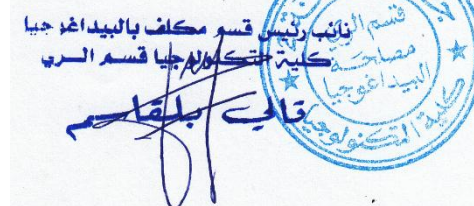 نائب رئيس قسم مكلف بالبيداغوجيا
كلية التكنولوجيا قسم الري
قالي بلقاسم
قسم الري
مصلحة
البيداغوجيا
كلية التكنولوجيا